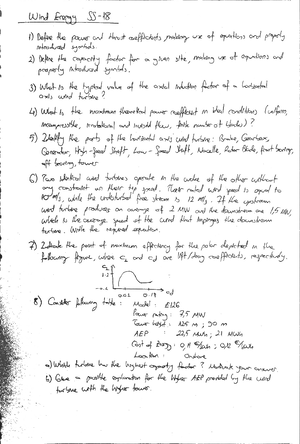 Wind Energy SS-18
1) Define the power and thrust coefficients, making use of equations and properly
introduced symbols.
2) Define the capacity factor for a given site, making use of equations and
properly introduced symbols.
3) What is the typical value of the axial induction factor of a horizontal
axis wind turbine?
4) What is the maximum theoretical power coefficient in ideal conditions (uniform,
incompressible, and inviscid flow, number of blades)?
5) Identify the parts of the horizontal axis wind turbine: Brake, Gearbox,
Generator, High-Speed Shaft, Low-Speed Shaft, Nacelle, Rotor Blade, front bearing,
aft bearing, tower
6) Two identical wind turbines operate in the wake of the other without
any constraint on their tip speed. Their rated wind speed is equal to
10 m/s, while the undisturbed free stream is 12 m/s. If the upstream
wind turbine produces on average of 2 MW and the downstream one 1,5 MW,
which is the average speed of the wind that impinges the downstream
turbine. Write the required equation.
7) Indicate the point of maximum efficiency for the polar depicted in the
following figure, where CL and CD are lift/drag coefficients, respectively.
CL
1.2
0.02 0.14 CD
8) Consider following table: Model: E126
Power rating: 7,5 MW
Tower height: 125 m; 90 m
AEP: 22,5 MWh; 21 MWh
Cost of Energy: 0,11 €/kWh; 0,12 €/kWh
Location: Onshore
a) Which turbine has the highest capacity factor? Motivate your answer.
b) Give a possible explanation for the higher AEP provided by the wind
turbine with the higher tower.